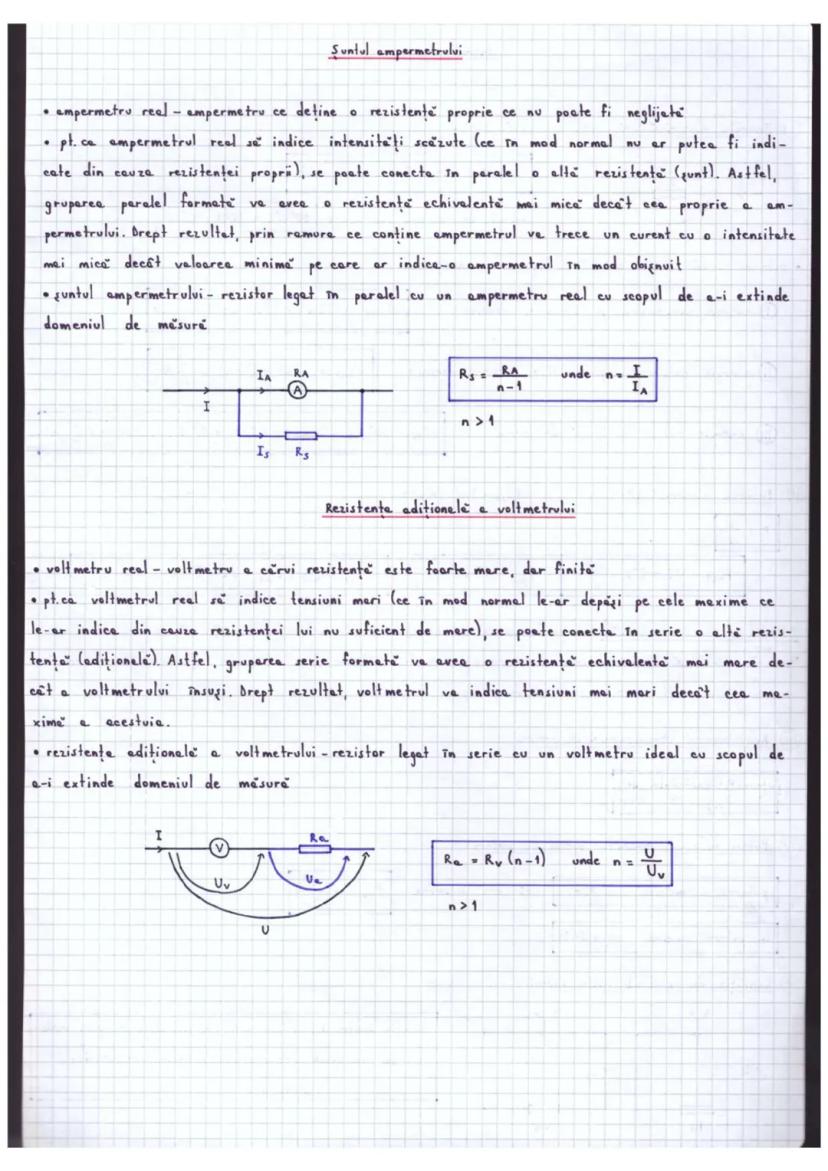 Șuntul ampermetrului
• ampermetru real – ampermetru ce deține o rezistență proprie ce nu poate fi neglijată
• pt. ca ampermetrul real să indice intensități scăzute (ce în mod normal nu ar putea fi indi-
cate din cauza rezistenței proprii), se poate conecta în paralel o altă rezistență (șunt). Astfel,
gruparea paralel formată va avea o rezistență echivalentă mai mică decât cea proprie a am-
permetrului. Drept rezultat, prin ramura ce conține ampermetrul va trece un curent cu o intensitate
mai mică decât valoarea minimă pe care ar indica-o ampermetrul în mod obișnuit
• șuntul ampermetrului – rezistor legat în paralel cu un ampermetru real cu scopul de a-i extinde
domeniul de măsură
I_A R_A
A
I
I_S R_S
R_S = R_A / (n-1) unde n = I / I_A
n > 1
Rezistența adițională a voltmetrului
• voltmetru real – voltmetru a cărui rezistență este foarte mare, dar finită
• pt. ca voltmetrul real să indice tensiuni mari (ce în mod normal le-ar depăși pe cele maxime ce
le-ar indica din cauza rezistenței lui nu suficient de mare), se poate conecta în serie o altă rezis-
tență (adițională). Astfel, gruparea serie formată va avea o rezistență echivalentă mai mare de-
cât a voltmetrului însuși. Drept rezultat, voltmetrul va indica tensiuni mai mari decât cea ma-
ximă a acestuia.
• rezistența adițională a voltmetrului – rezistor legat în serie cu un voltmetru ideal cu scopul de
a-i extinde domeniul de măsură
I
V
R_a
U_V
U_a
U
R_a = R_V (n-1) unde n = U / U_V
n > 1